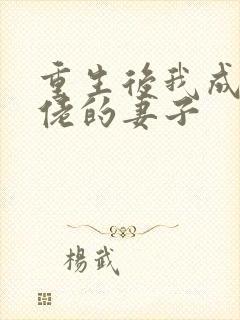 重生後我成
佬的妻子
楊武